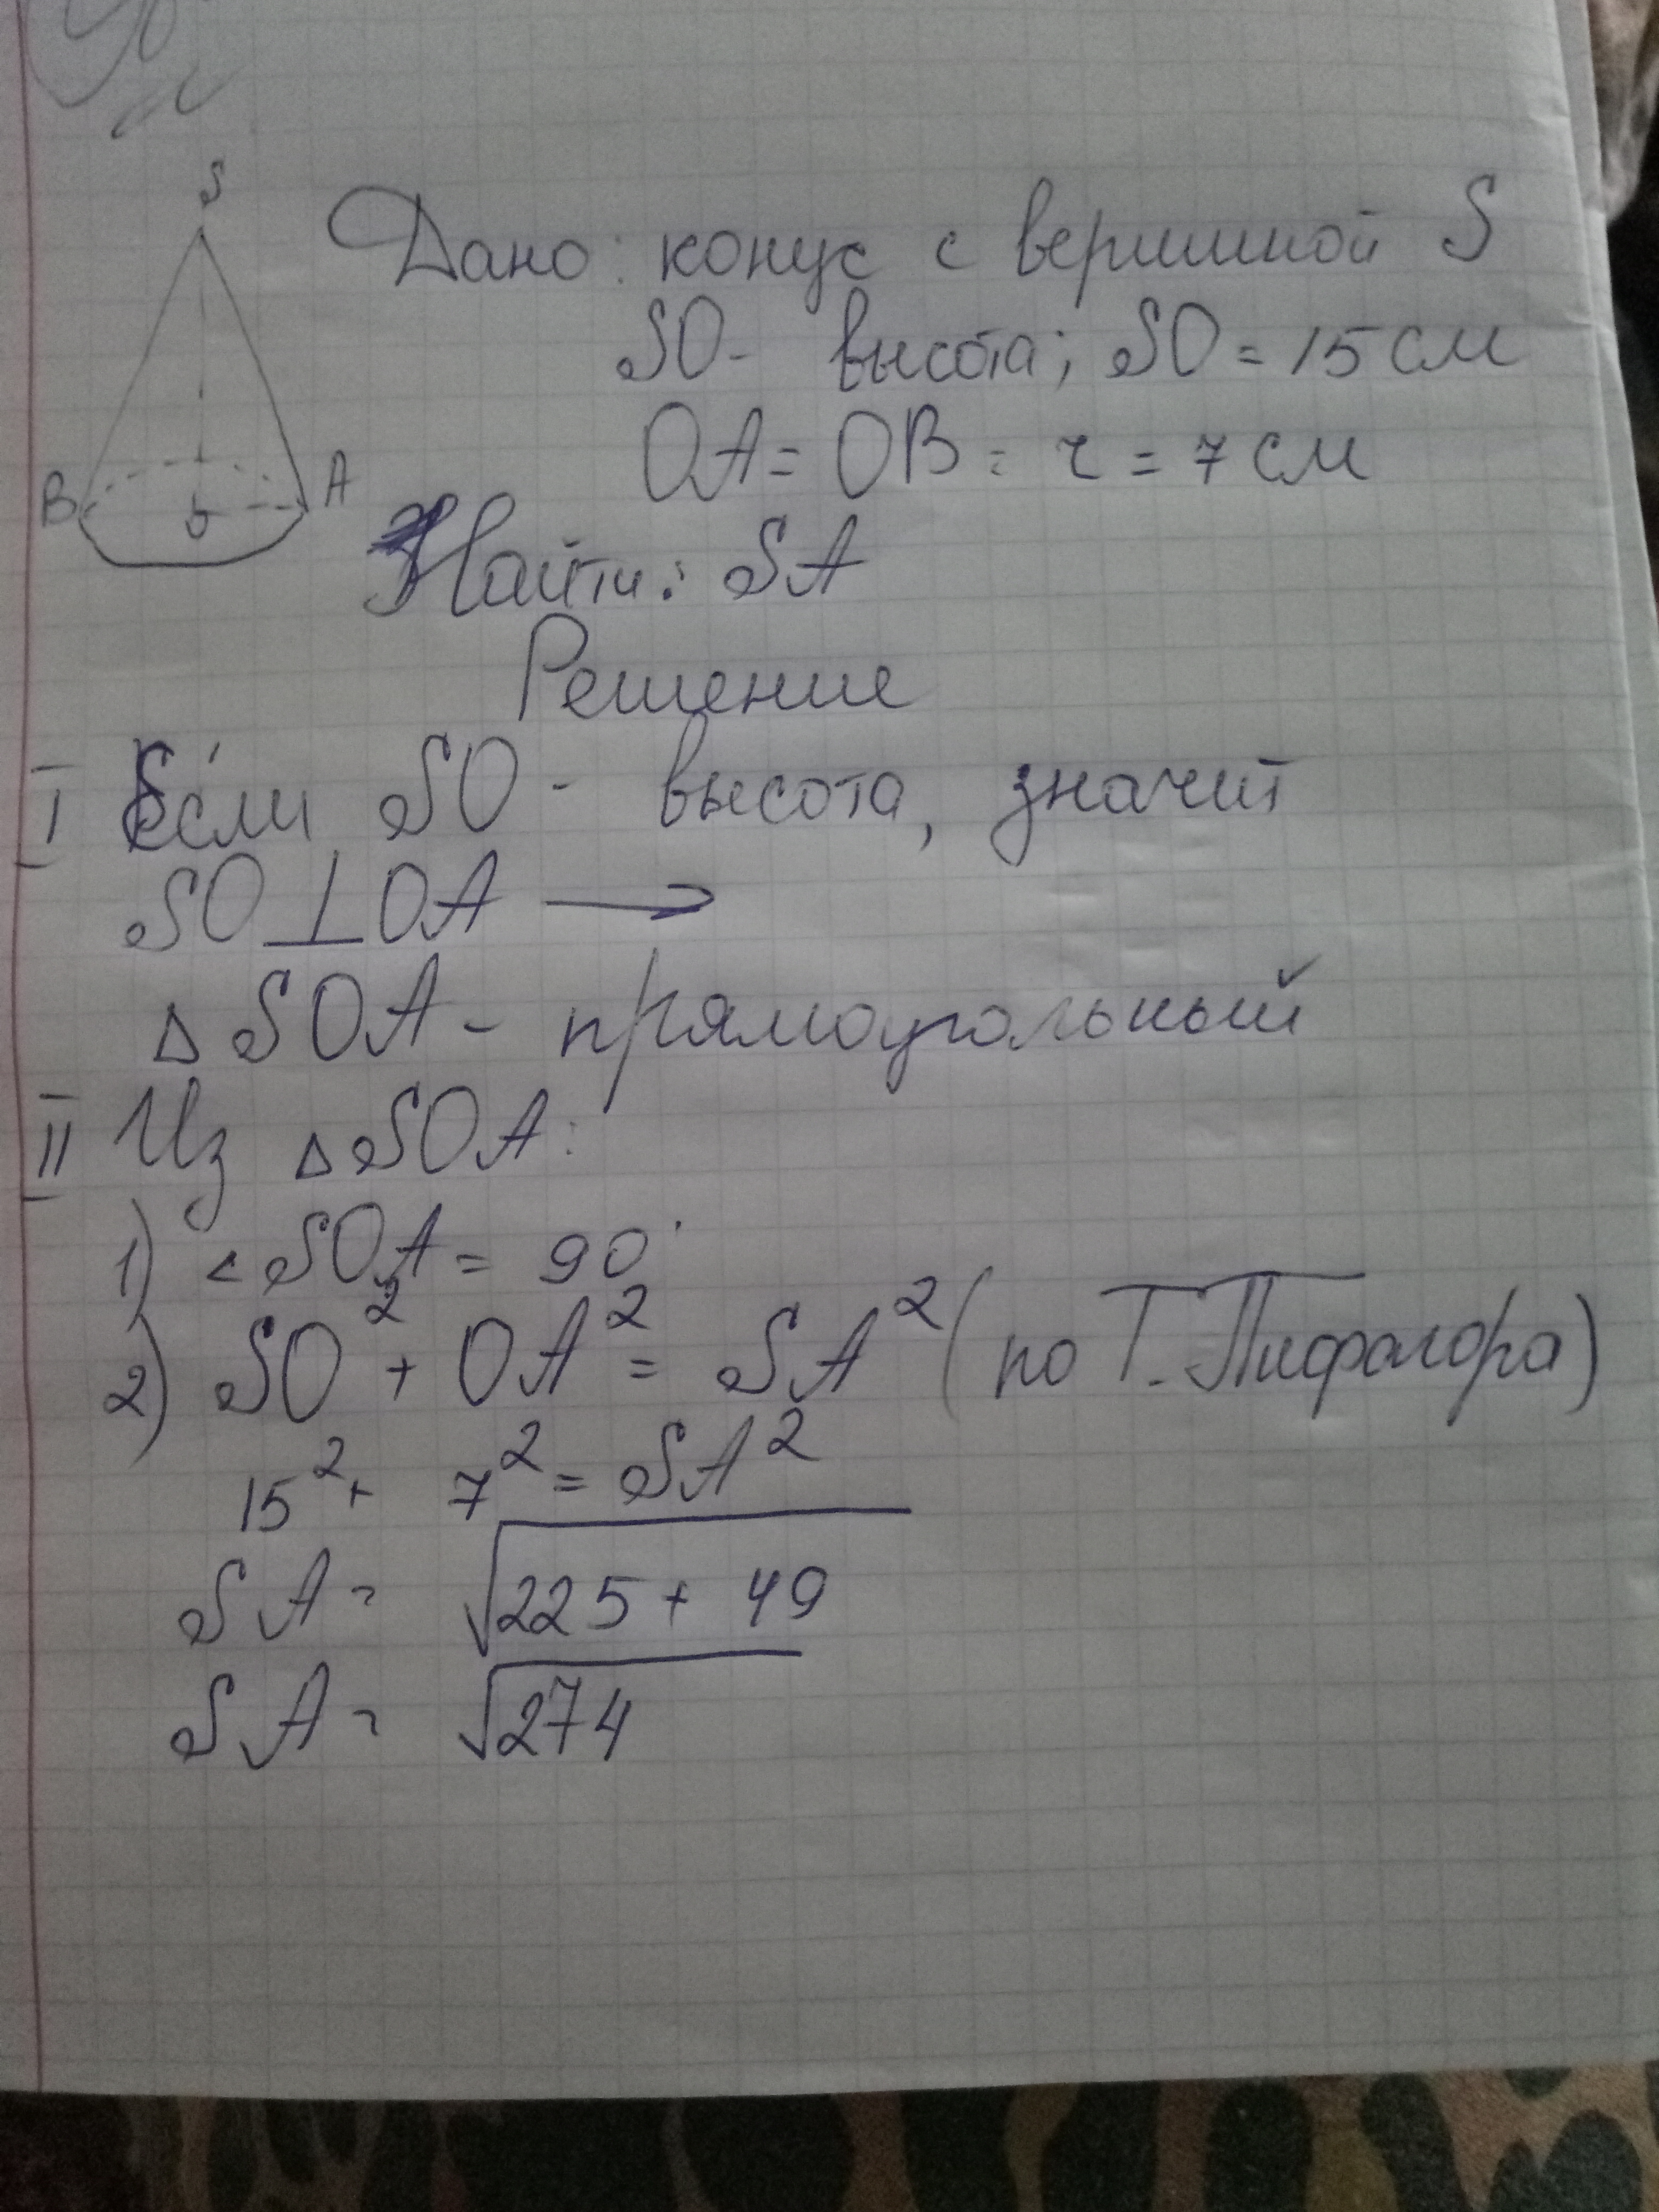 S
Дано: конус с вершиной S
SO - высота; SO = 15 см
OA = OB = r = 7 см
B O A
Найти: SA
Решение
I Если SO - высота, значит
SO ⊥ OA →
△ SOA - прямоугольный
II Из △ SOA:
1) ∠ SOA = 90°
2) SO² + OA² = SA² (по Т. Пифагора)
15² + 7² = SA²
SA = √225 + 49
SA = √274